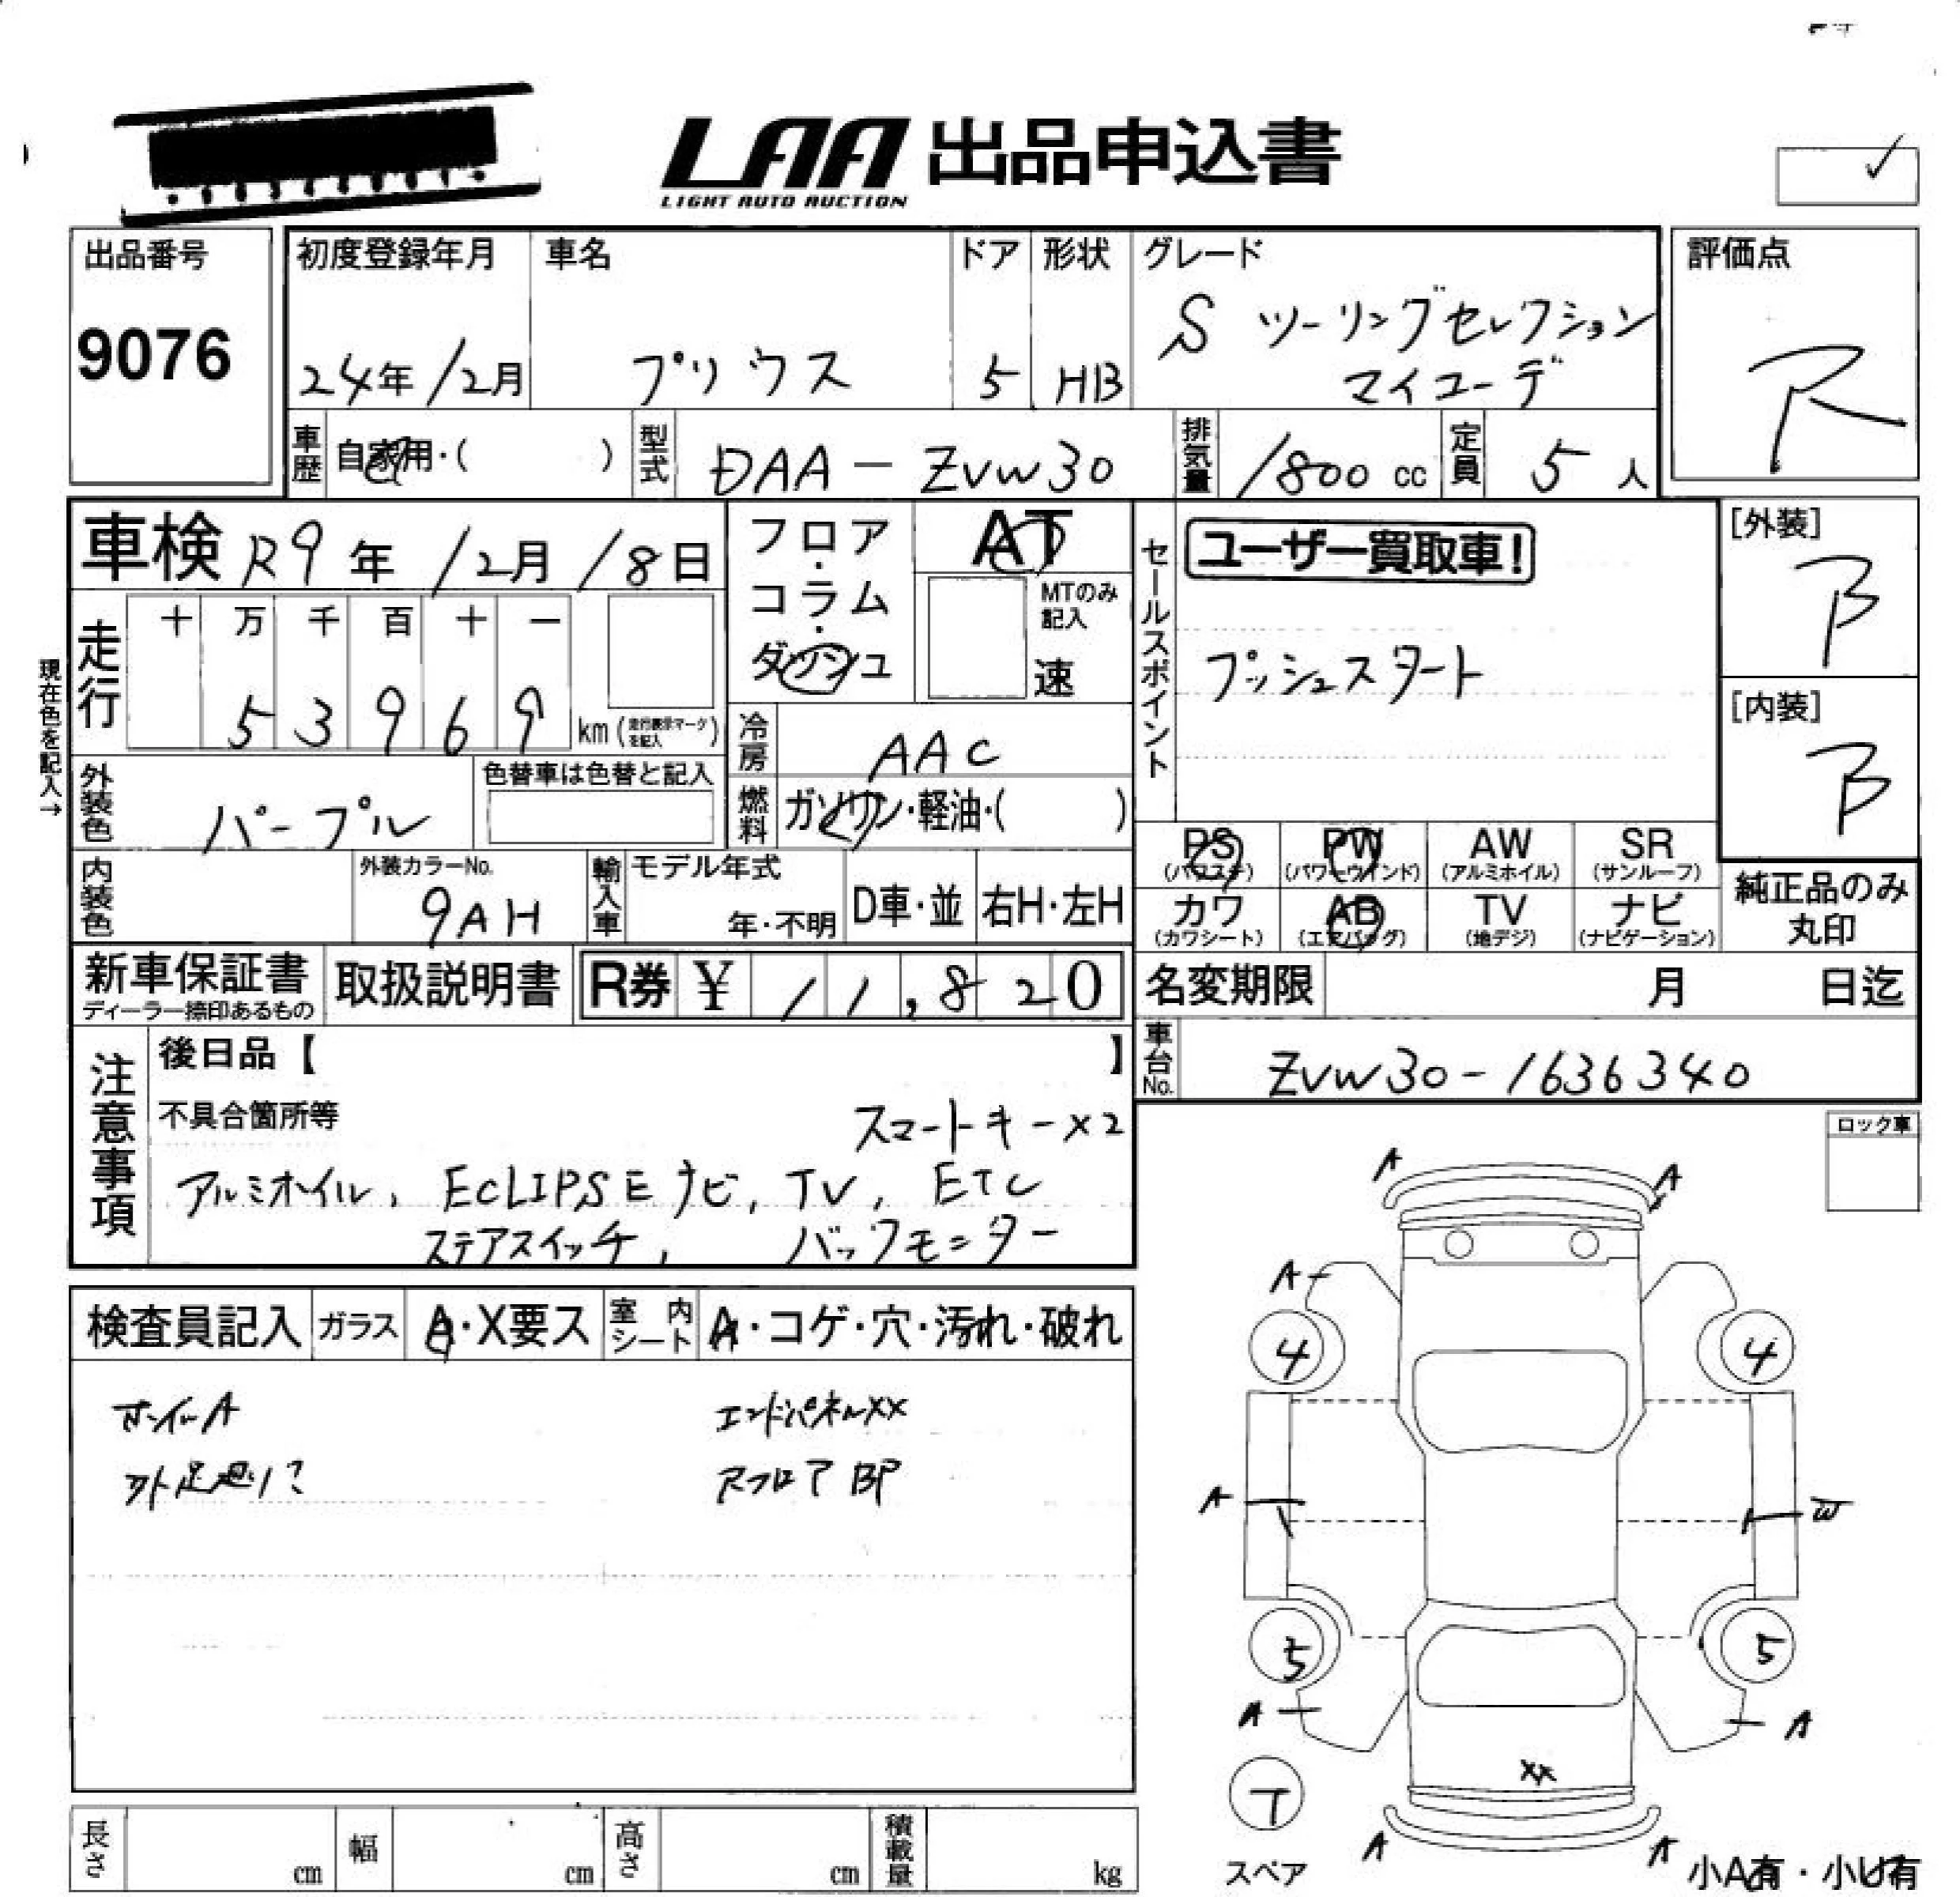 LAA 出品申込書
LIGHT AUTO AUCTION
出品番号
9076
初度登録年月
24年 12月
車名
プリウス
ドア
5
形状
HB
グレード
S ツーリングセレクション
マイコーデ
評価点
R
車歴
自家用・( )
型式
DAA-ZVW30
排気量
1800 cc
定員
5 人
車検 R9年 12月 18日
フロア・コラム・ダッシュ
AT
MTのみ記入
速
セールスポイント
ユーザー買取車!
プッシュスタート
[外装]
B
[内装]
B
現在色を記入→
走行
十 万 千 百 十 一
5 3 9 6 9 km (走行表示マークを記入)
冷房
AAC
外装色
パープル
色替車は色替と記入
燃料
ガソリン・軽油・( )
PS (パワステ)
PW (パワーウインド)
AW (アルミホイル)
SR (サンルーフ)
カワ (カワシート)
AB (エアバッグ)
TV (地デジ)
ナビ (ナビゲーション)
純正品のみ
丸印
内装色
外装カラーNo.
9AH
輸入車
モデル年式
年・不明
D車・並
右H・左H
新車保証書
ディーラー捺印あるもの
取扱説明書
R券 ¥ 11,820
名変期限 月 日迄
車台No.
ZVW30-1636340
注意事項
後日品【 】
不具合箇所等
スマートキー×2
アルミホイル, ECLIPSEナビ, TV, ETC
ステアスイッチ, バックモニター
ロック車
検査員記入
ガラス
A・X要ス
室内シート
A・コゲ・穴・汚れ・破れ
ホイルA
エンドパネルXX
外足廻り?
Rフロア BP
A A
A
4 4
A W
5 5
A A
XX
T
スペア
A A
小A有・小U有
長さ cm
幅 cm
高さ cm
積載量 kg